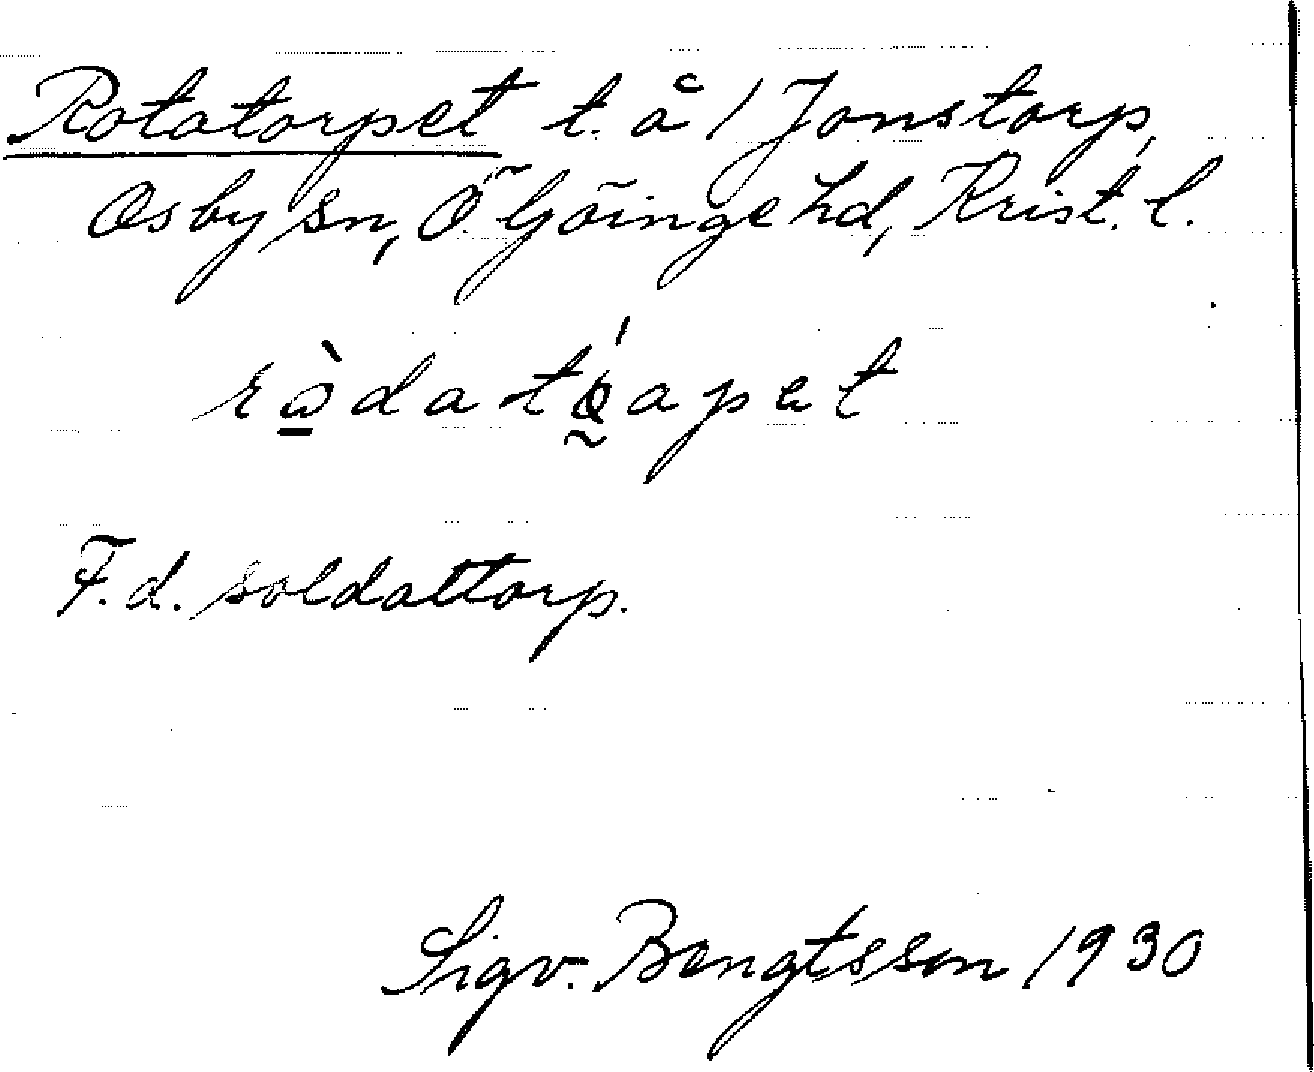 Rotatorpet t. å 1 Jonstorp,
Osby sn, Ö. Göinge hd, Krist. l.
F.d. soldattorp.
Sigv. Bengtsson 1930